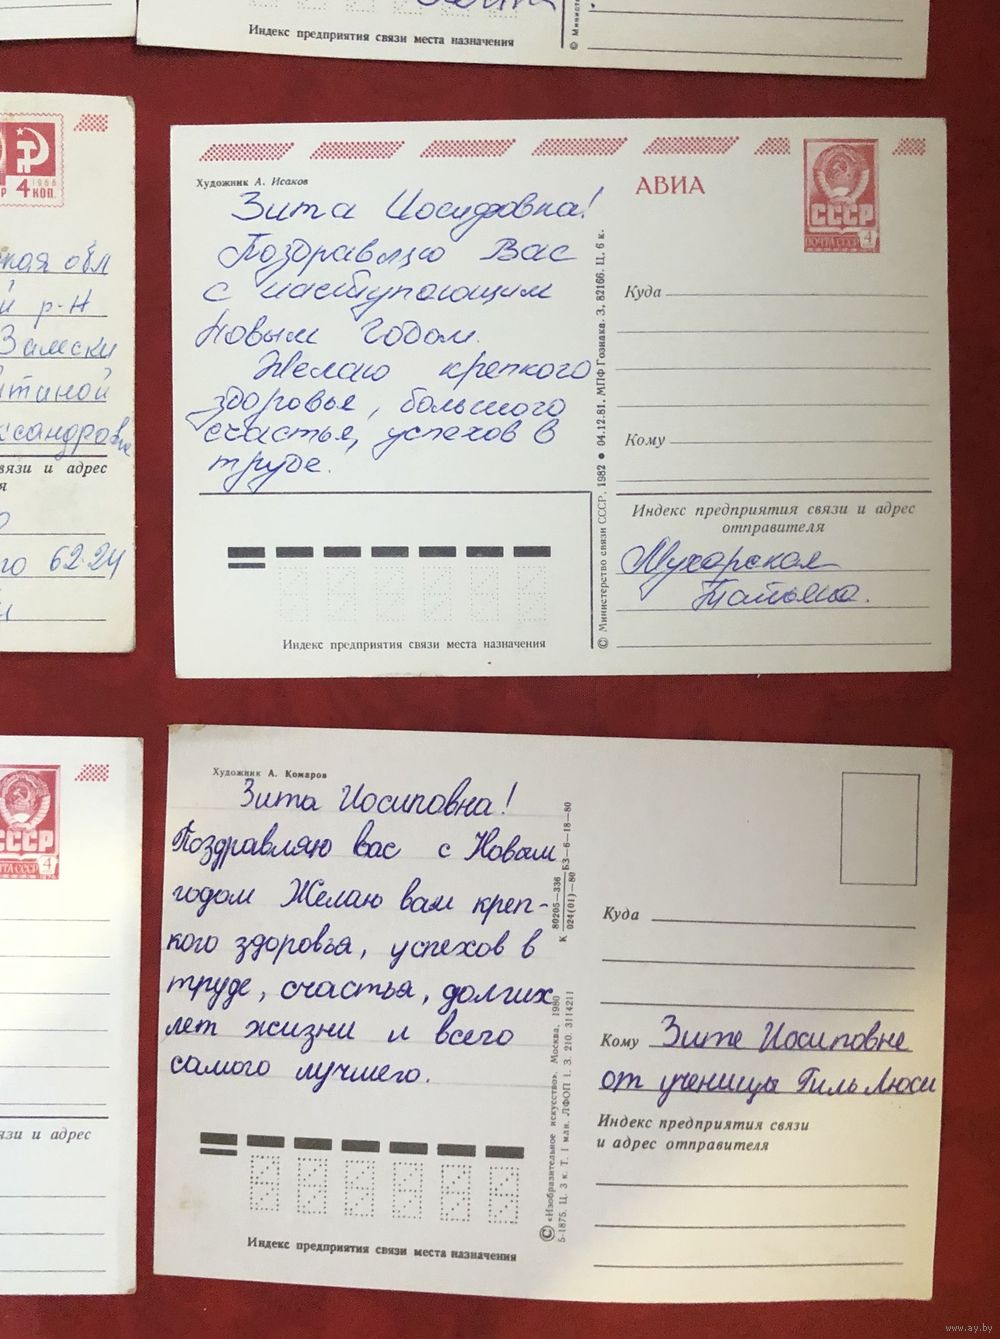 Индекс предприятия связи места назначения
© Минист
4 1966
КОП.
ная обл
й р-н
Замски
ксандровне
вязи и адрес
я
го 62-24
Художник А. Исаков
АВИА
СССР
ПОЧТА СССР 4
Зита Иосифовна!
Поздравляю Вас
с наступающим
Новым годом.
Желаю крепкого
здоровья, большого
счастья, успехов в
труде.
Куда
Кому
Индекс предприятия связи и адрес
отправителя
Мухарская
Татьяна.
Индекс предприятия связи места назначения
© Министерство связи СССР, 1982 ● 04.12.81. МПФ Гознака. З. 82166. Ц. 6 к.
СССР
ПОЧТА СССР 4
язи и адрес
Художник А. Комаров
Зита Иосиповна!
Поздравляю вас с Новым
годом Желаю вам креп-
кого здоровья, успехов в
труде, счастья, долгих
лет жизни и всего
самого лучшего.
Куда
Кому Зите Иосиповне
от ученицы Гиль Люси
Индекс предприятия связи
и адрес отправителя
Индекс предприятия связи места назначения
© «Изобразительное искусство». Москва. 1980
5-1875. Ц. 3 к. Т. 1 млн. ЛФОП 1. З. 210. 3114211
К 80205—336
024(01)—80 БЗ—6—18—80
www.ay.by